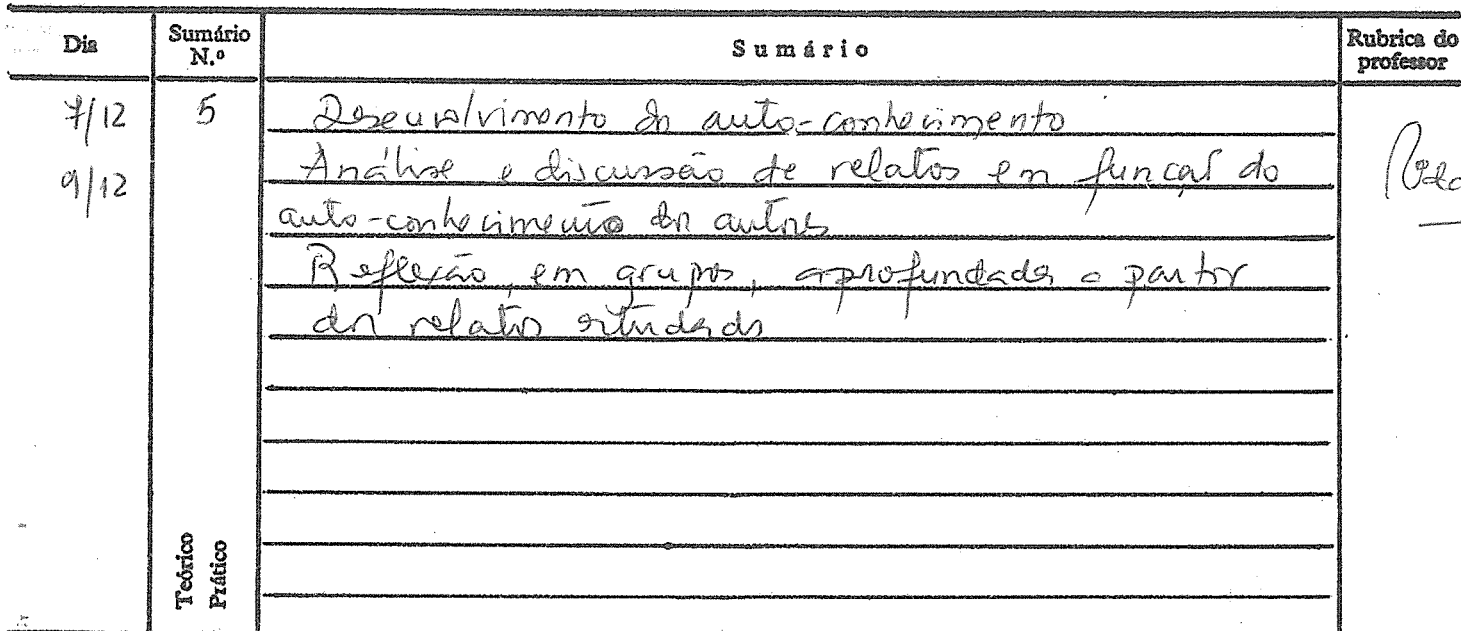 Dia
Sumário N.º
Sumário
Rubrica do professor
7/12
5
Desenvolvimento do auto-conhecimento
9/12
Análise e discussão de relatos em função do
auto-conhecimento dos autores
Reflexão, em grupos, aprofundada a partir
dos relatos estudados
Teórico
Prático